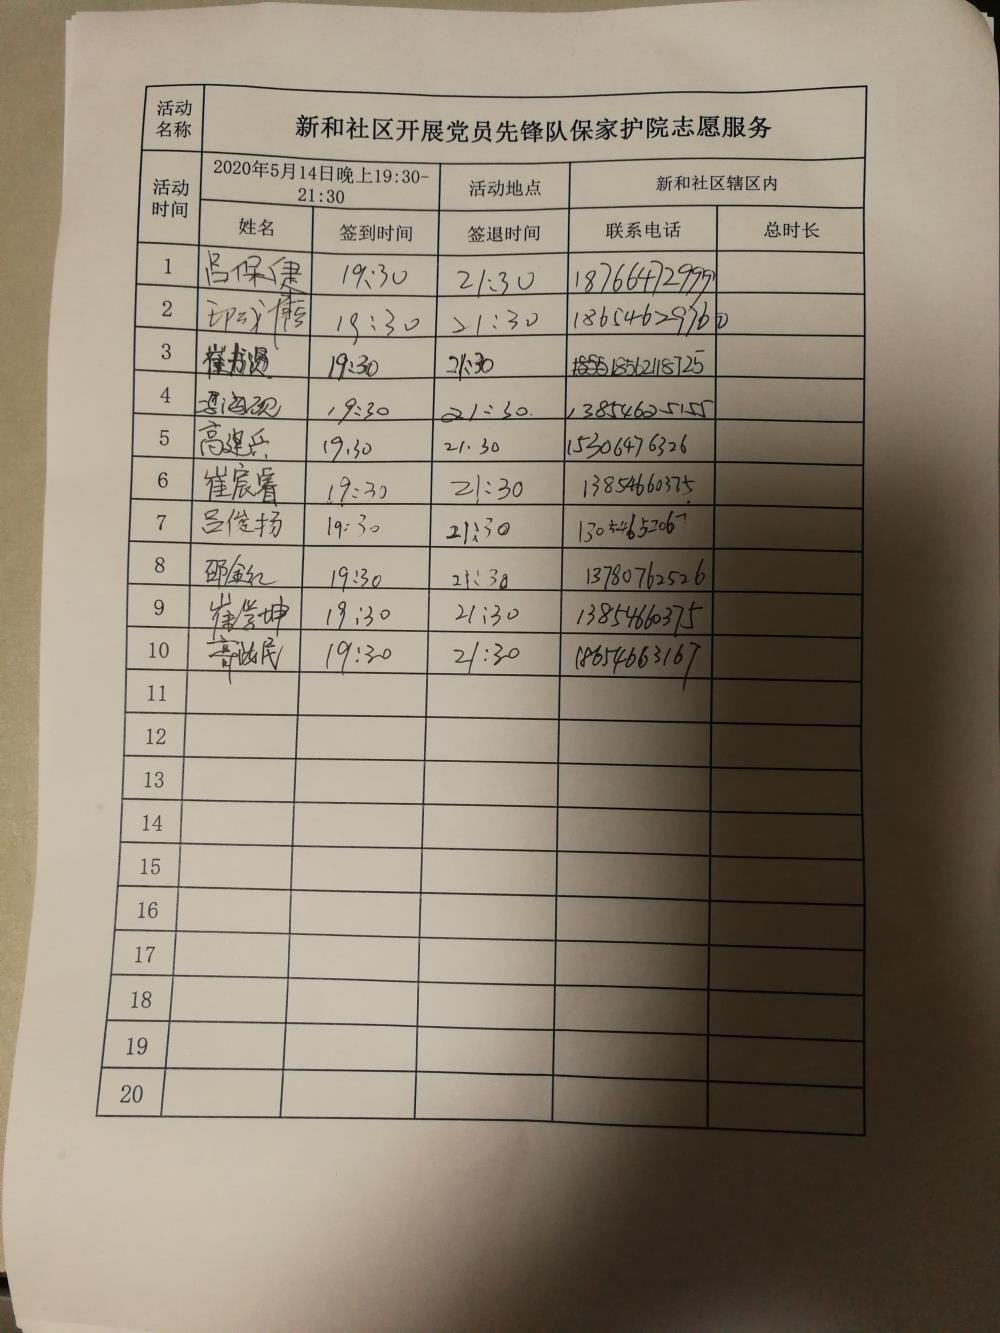 活动名称 新和社区开展党员先锋队保家护院志愿服务
活动时间 2020年5月14日晚上19:30-21:30 活动地点 新和社区辖区内
姓名 签到时间 签退时间 联系电话 总时长
1 吕保健 19:30 21:30
2 19:30 21:30
3 19:30 21:30 18562118725
4 19:30 21:30. 13854625155
5 高建兵 19.30 21.30 15306476326
6 崔宸睿 19:30 21:30 13854660375
7 吕俊扬 19:30 21:30
8 邵金红 19:30 21:30 13780762526
9 崔学坤 19:30 21:30 13854660375
10 19:30 21:30 18654663167
11
12
13
14
15
16
17
18
19
20